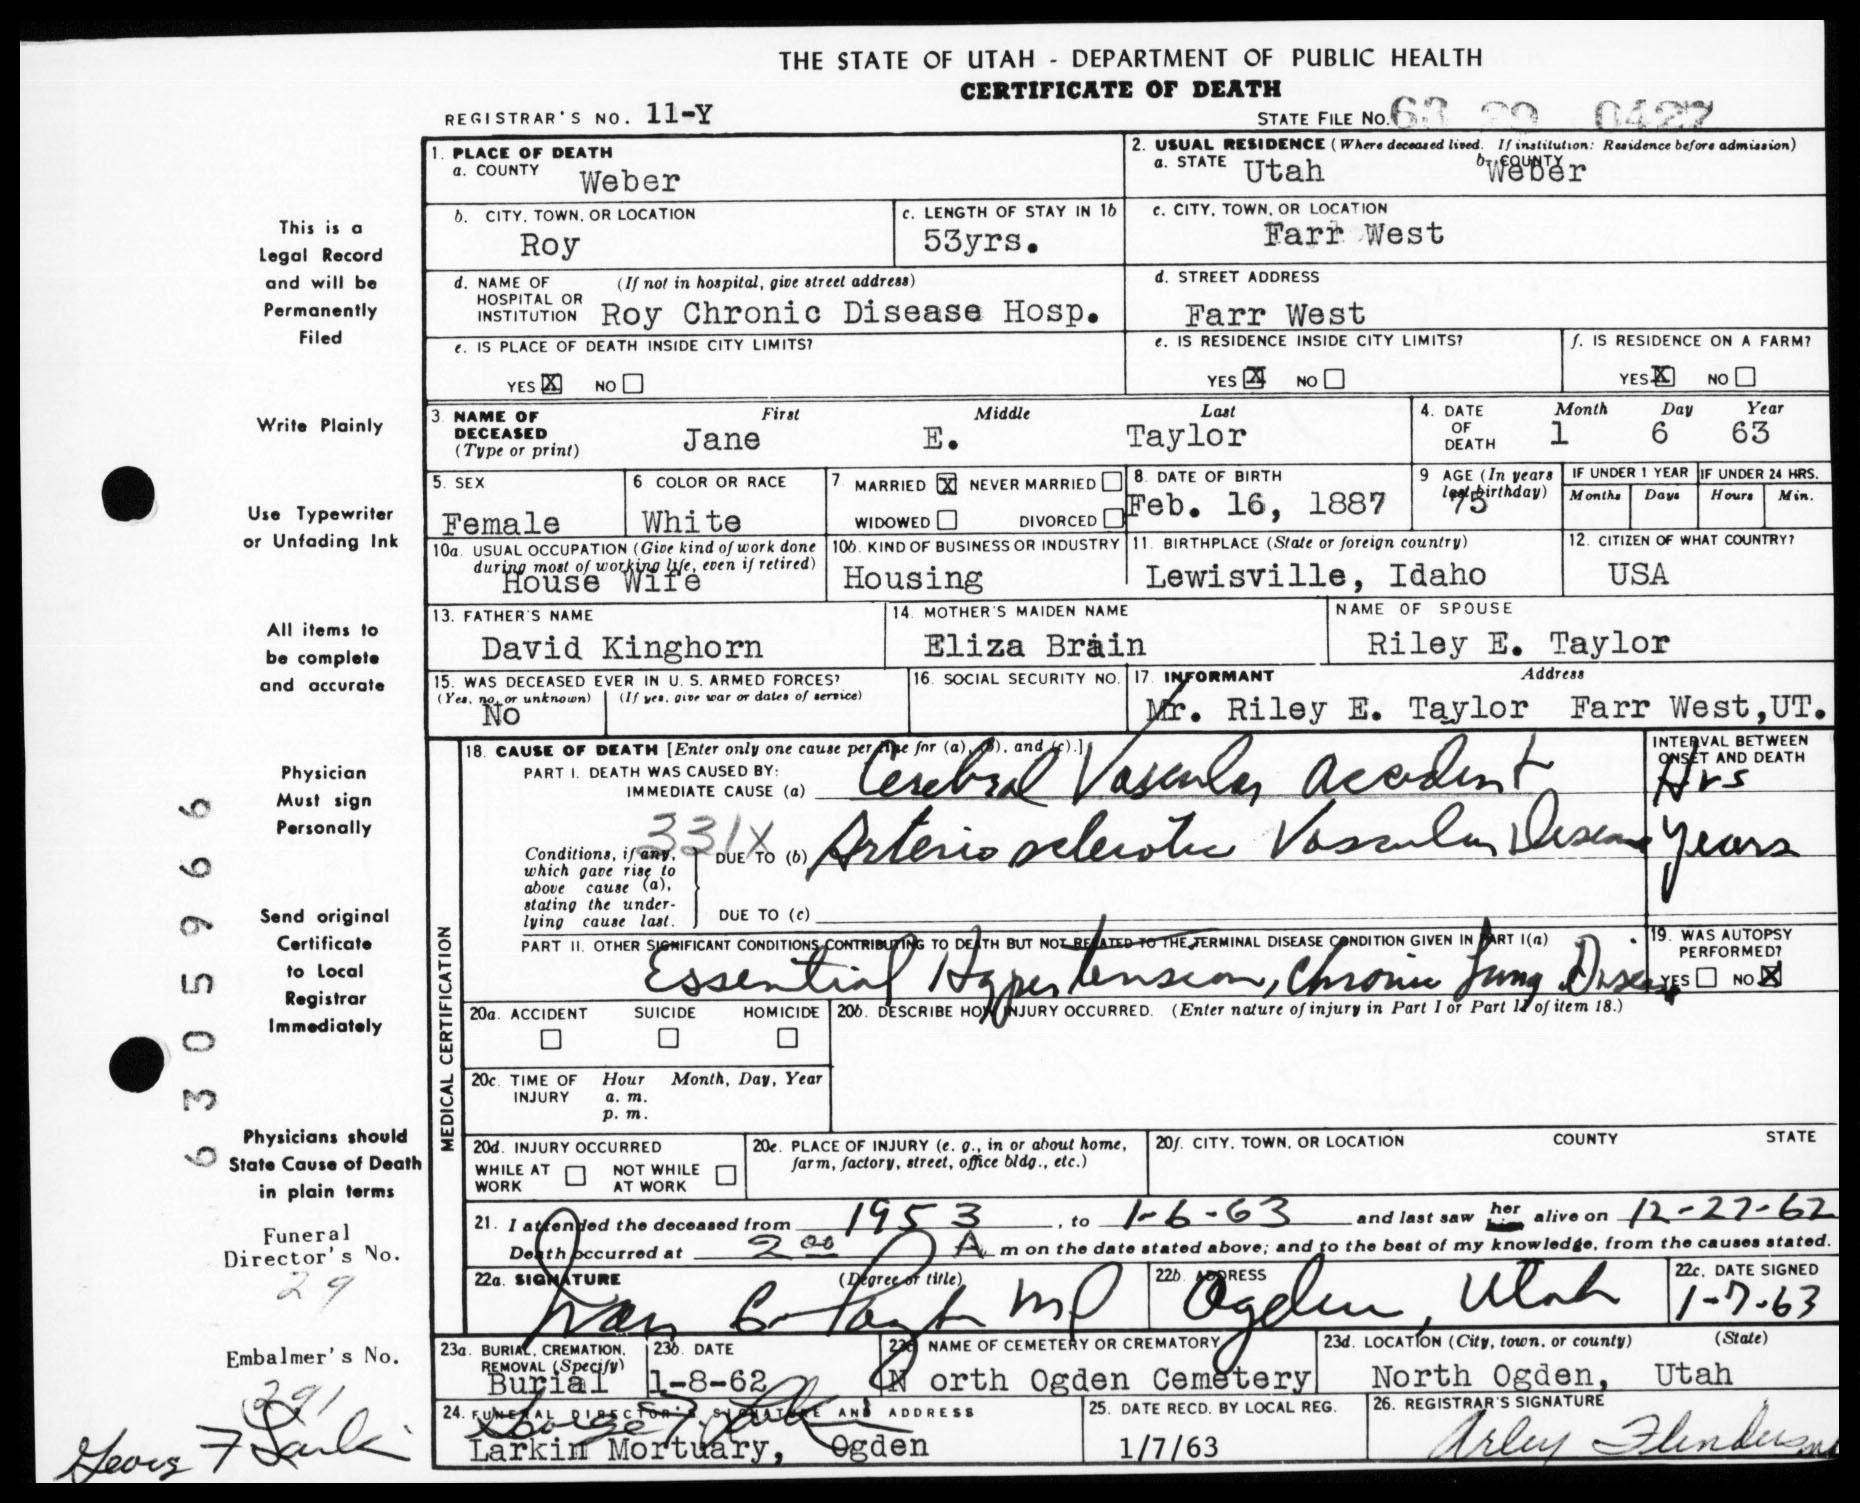 THE STATE OF UTAH - DEPARTMENT OF PUBLIC HEALTH
CERTIFICATE OF DEATH
REGISTRAR'S NO. 11-Y STATE FILE NO. 63 29 0427
1. PLACE OF DEATH
a. COUNTY Weber
2. USUAL RESIDENCE (Where deceased lived. If institution: Residence before admission)
a. STATE Utah b. COUNTY Weber
b. CITY, TOWN, OR LOCATION Roy
c. LENGTH OF STAY IN 1b 53yrs.
c. CITY, TOWN, OR LOCATION Farr West
d. NAME OF HOSPITAL OR INSTITUTION (If not in hospital, give street address) Roy Chronic Disease Hosp.
d. STREET ADDRESS Farr West
e. IS PLACE OF DEATH INSIDE CITY LIMITS? YES X NO
e. IS RESIDENCE INSIDE CITY LIMITS? YES X NO
f. IS RESIDENCE ON A FARM? YES X NO
3. NAME OF DECEASED (Type or print) First Jane Middle E. Last Taylor
4. DATE OF DEATH Month 1 Day 6 Year 63
5. SEX Female
6 COLOR OR RACE White
7 MARRIED X NEVER MARRIED WIDOWED DIVORCED
8. DATE OF BIRTH Feb. 16, 1887
9 AGE (In years last birthday) 75
IF UNDER 1 YEAR Months Days
IF UNDER 24 HRS. Hours Min.
10a. USUAL OCCUPATION (Give kind of work done during most of working life, even if retired) House Wife
10b. KIND OF BUSINESS OR INDUSTRY Housing
11. BIRTHPLACE (State or foreign country) Lewisville, Idaho
12. CITIZEN OF WHAT COUNTRY? USA
13. FATHER'S NAME David Kinghorn
14. MOTHER'S MAIDEN NAME Eliza Brain
NAME OF SPOUSE Riley E. Taylor
15. WAS DECEASED EVER IN U. S. ARMED FORCES?
(Yes, no, or unknown) No (If yes, give war or dates of service)
16. SOCIAL SECURITY NO.
17. INFORMANT Address
Mr. Riley E. Taylor Farr West,UT.
MEDICAL CERTIFICATION
18. CAUSE OF DEATH [Enter only one cause per line for (a), (b), and (c).]
PART I. DEATH WAS CAUSED BY:
IMMEDIATE CAUSE (a) Cerebral Vascular Accident
INTERVAL BETWEEN ONSET AND DEATH Hrs
331X
Conditions, if any, which gave rise to above cause (a), stating the underlying cause last.
DUE TO (b) Arteriosclerotic Vascular Disease Years
DUE TO (c)
PART II. OTHER SIGNIFICANT CONDITIONS CONTRIBUTING TO DEATH BUT NOT RELATED TO THE TERMINAL DISEASE CONDITION GIVEN IN PART I(a)
Essential Hypertension, Chronic Lung Disease
19. WAS AUTOPSY PERFORMED? YES NO X
20a. ACCIDENT SUICIDE HOMICIDE
20b. DESCRIBE HOW INJURY OCCURRED. (Enter nature of injury in Part I or Part II of item 18.)
20c. TIME OF INJURY Hour a. m. p. m. Month, Day, Year
20d. INJURY OCCURRED
WHILE AT WORK NOT WHILE AT WORK
20e. PLACE OF INJURY (e. g., in or about home, farm, factory, street, office bldg., etc.)
20f. CITY, TOWN, OR LOCATION COUNTY STATE
21. I attended the deceased from 1953, to 1-6-63 and last saw her him alive on 12-27-62
Death occurred at 2 00 A m on the date stated above; and to the best of my knowledge, from the causes stated.
22a. SIGNATURE (Degree or title) MD
22b. ADDRESS Ogden, Utah
22c. DATE SIGNED 1-7-63
23a. BURIAL, CREMATION, REMOVAL (Specify) Burial
23b. DATE 1-8-62
23c. NAME OF CEMETERY OR CREMATORY N orth Ogden Cemetery
23d. LOCATION (City, town, or county) (State) North Ogden, Utah
24. FUNERAL DIRECTOR'S SIGNATURE AND ADDRESS
George F. Larkin
Larkin Mortuary, Ogden
25. DATE RECD. BY LOCAL REG. 1/7/63
26. REGISTRAR'S SIGNATURE
Arley Flinders
This is a
Legal Record
and will be
Permanently
Filed
Write Plainly
Use Typewriter
or Unfading Ink
All items to
be complete
and accurate
Physician
Must sign
Personally
Send original
Certificate
to Local
Registrar
Immediately
Physicians should
State Cause of Death
in plain terms
Funeral
Director's No.
29
Embalmer's No.
391
George F Larkin
6305966